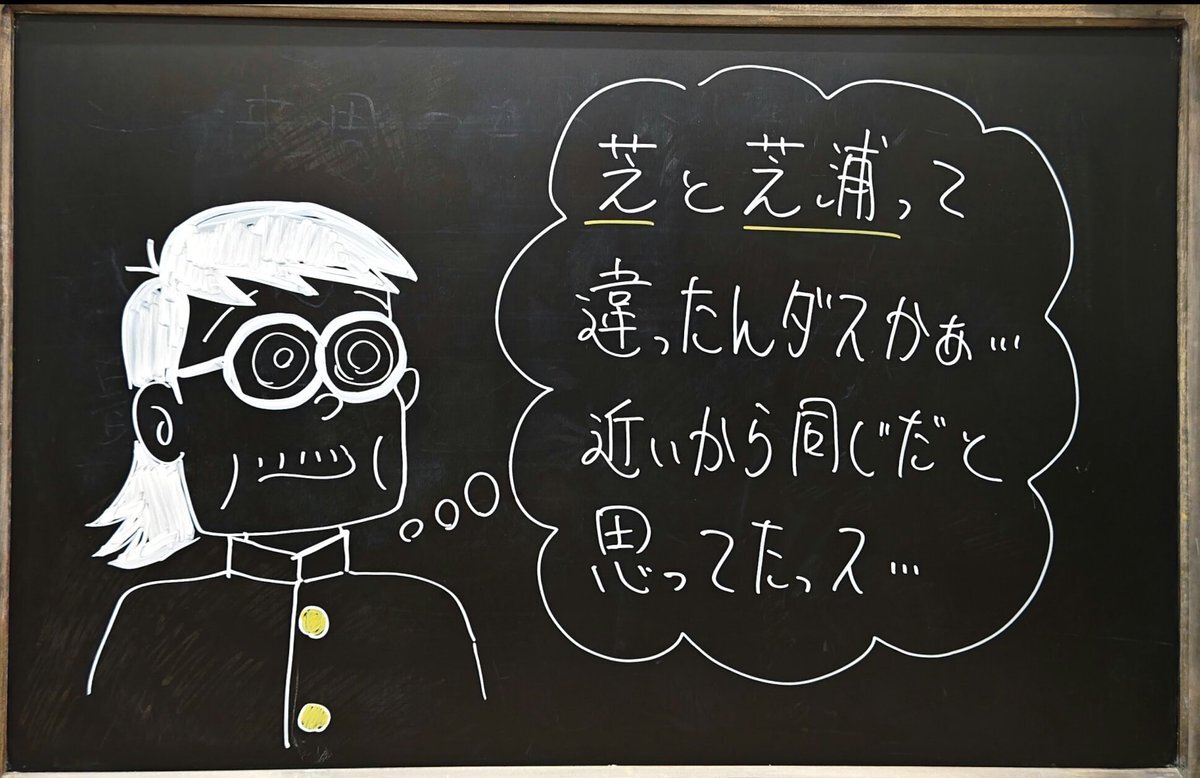 芝と芝浦って
違ったんダスかぁ…
近いから同じだと
思ってたっス…